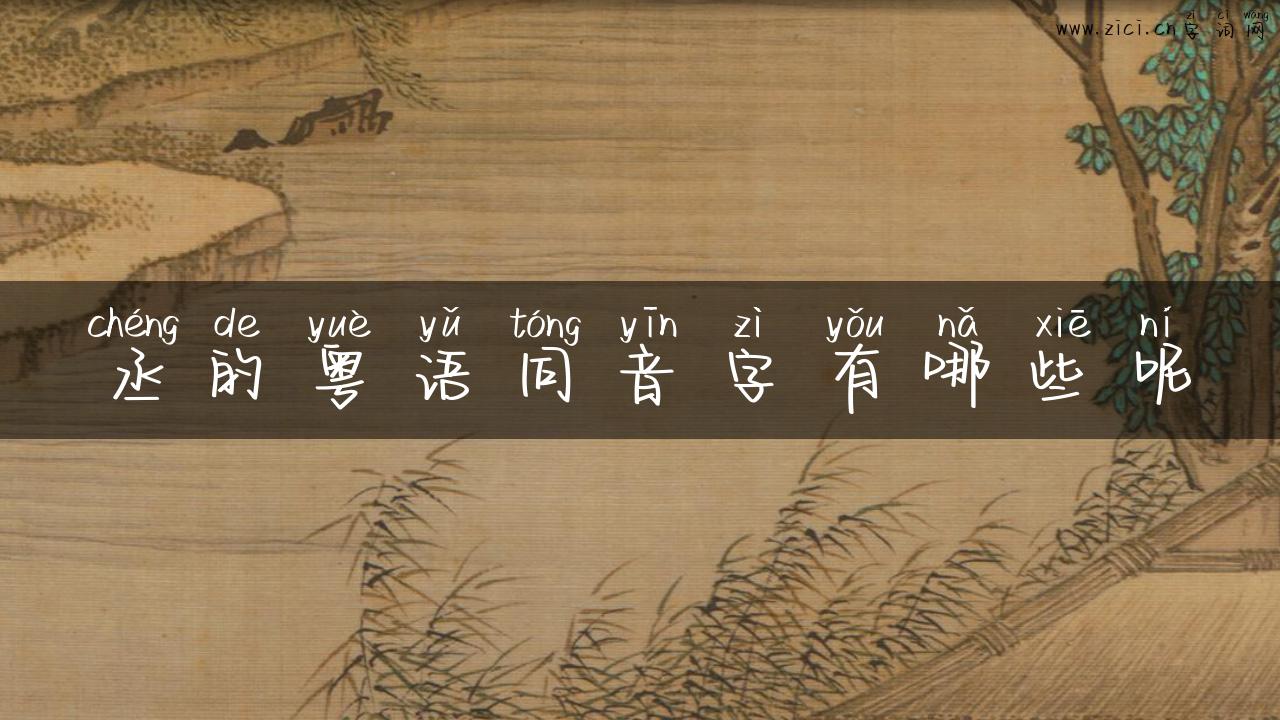 zì cí wǎng
www.zici.cn字词网
chéng de yuè yǔ tóng yīn zì yǒu nǎ xiē ní
丞的粤语同音字有哪些呢